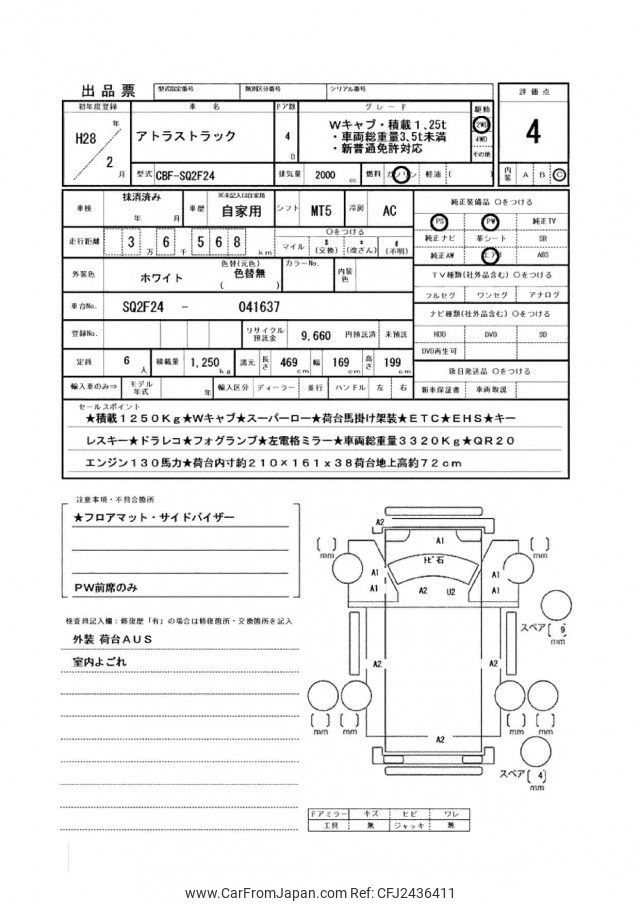 出品票
型式指定番号
類別区分番号
シリアル番号
評価点
4
内装 A B C
初年度登録
車名
ドア数
グレード
駆動
H28年
2月
アトラストラック
4
D
Wキャブ・積載1,25t
・車両総重量3,5t未満
・新普通免許対応
2WD
4WD
その他
型式 CBF-SQ2F24
排気量 2000 cc
燃料 ガソリン 軽油 ( )
車検
抹消済み
年 月
車歴
※未記入は自家用
自家用
シフト MT5
冷房 AC
走行距離 3万6千568km
〇をつける
マイル
$ (交換)
* (改ざん)
# (不明)
外装色 ホワイト
色替(元色)
色替無
( )
カラーNo.
内装色
車台No. SQ2F24 - 041637
登録No.
リサイクル預託金 9,660 円預託済 未預託
定員 6人
積載量 1,250 kg
諸元 長さ 469 cm 幅 169 cm 高さ 199 cm
輸入車のみ⇒
モデル年式 年
輸入区分 ディーラー 並行
ハンドル 左 右
純正装備品 〇をつける
PS PW 純正TV
純正ナビ 革シート SR
純正AW エアB ABS
TV種類(社外品含む) 〇をつける
フルセグ ワンセグ アナログ
ナビ種類(社外品含む) 〇をつける
HDD DVD SD
DVD再生可
後日発送品 〇をつける
新車保証書 車両取説
セールスポイント
★積載1250Kg★Wキャブ★スーパーロー★荷台馬掛け架装★ETC★EHS★キー
レスキー★ドラレコ★フォグランプ★左電格ミラー★車両総重量3320Kg★QR20
エンジン130馬力★荷台内寸約210×161x38荷台地上高約72cm
注意事項・不具合箇所
★フロアマット・サイドバイザー
PW前席のみ
検査員記入欄:修復歴「有」の場合は修復箇所・交換箇所を記入
外装 荷台AUS
室内よごれ
A2
A1
ﾄﾋﾞ石
[ ] mm
[ ] mm
A1
A1
A2 U2
A1
A1
スペア [ 9 ] mm
A2
A2
[ ] mm
[ ] mm
[ ] mm
[ ] mm
A2
スペア [ 4 ] mm
ドアミラー キズ ヒビ ワレ
工具 無 ジャッキ 無
www.CarFromJapan.com Ref: CFJ2436411